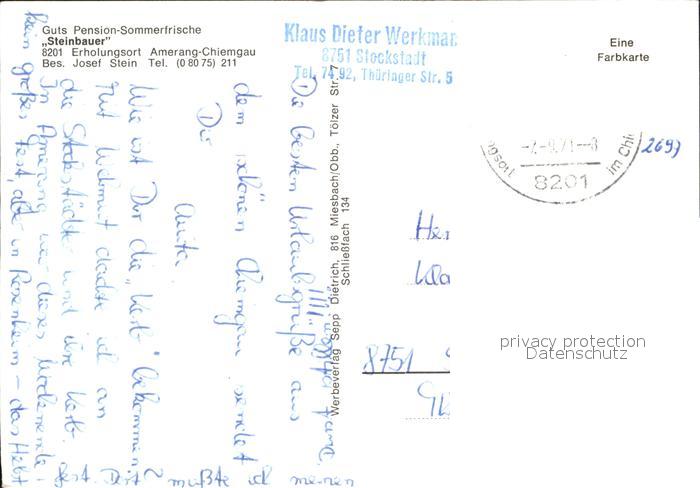 Guts Pension-Sommerfrische
„Steinbauer"
8201 Erholungsort Amerang-Chiemgau
Bes. Josef Stein Tel. (0 80 75) 211
Klaus Dieter Werkman
8751 Stockstadt
Tel. 74 92, Thüringer Str. 5
Eine
Farbkarte
-2.-9.71--8
8201
im Chi
2697
Die besten Urlaubsgrüße aus
dem schönen Chiemgau sendet
Dir
Anita.
Wie ist Dir die „Kerb" bekommen?
Mit Wehmut dachte ich an
die Stockstädter und ihre Kerb.
In Amerang war dieses Wochenende
kein großes Fest, aber in Rosenheim - das Herbst
fest. Dort mußte ich meinen
Werbeverlag Sepp Dietrich, 816 Miesbach/Obb., Tölzer Str. 7
Schließfach 134
Her
Kla
8751
privacy protection
Datenschutz